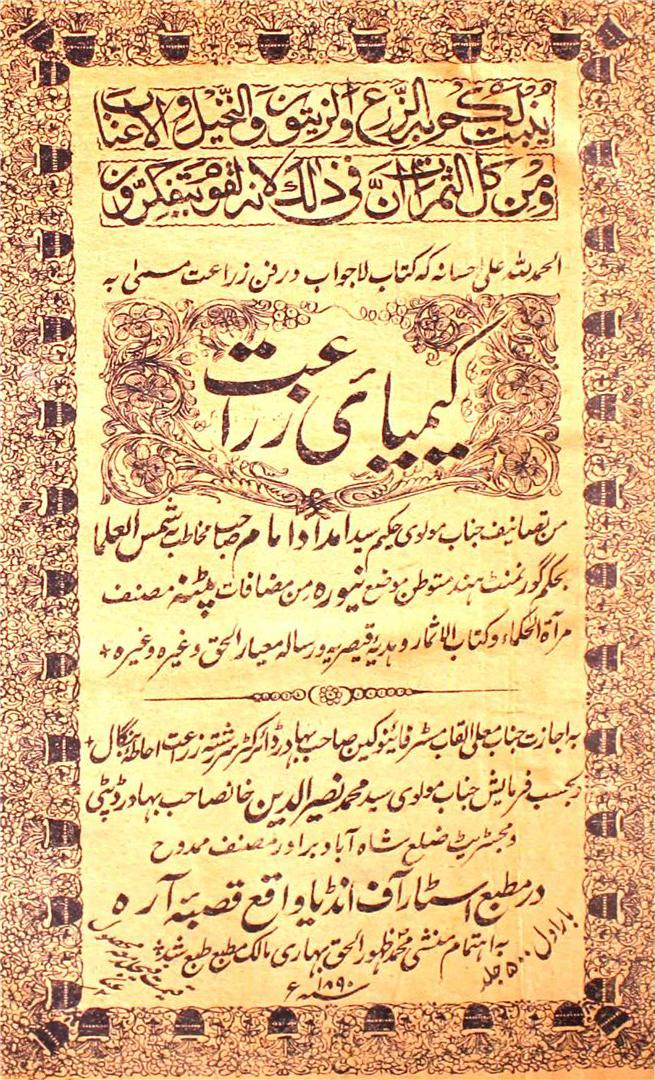 ینبت لکم به الزرع والزیتون والنخیل والاعناب
ومن کل الثمرات ان فی ذلک لایة لقوم یتفکرون
الحمد للہ علیٰ احسانہ کہ کتاب لاجواب در فن زراعت مسمیٰ بہ
کیمیائی زراعت
من تصانیف جناب مولوی حکیم سید امداد امام صاحب مخاطب شمس العلما
بحکم گورنمنٹ ہند متوطن موضع نیورہ من مضافات پٹنہ مصنف
مرآۃ الحکماء و کتاب الاثمار و ہدیہ قیصریہ و رسالہ معیار الحق وغیرہ وغیرہ
بہ اجازت جناب معلی القاب مسٹر فائنوکین صاحب بہادر ڈائرکٹر سررشتہ زراعت احاطہ بنگال
و بحسب فرمایش جناب مولوی سید محمد نصیر الدین خانصاحب بہادر ڈپٹی
و مجسٹریٹ ضلع شاہ آباد برادر مصنف ممدوح
در مطبع اسٹار آف انڈیا واقع قصبۂ آرہ
بہ اہتمام منشی محمد ظہور الحق بہاری مالک مطبع طبع شد
سنہ ۱۸۹۰ء
بار اول ۵۰۰ جلد